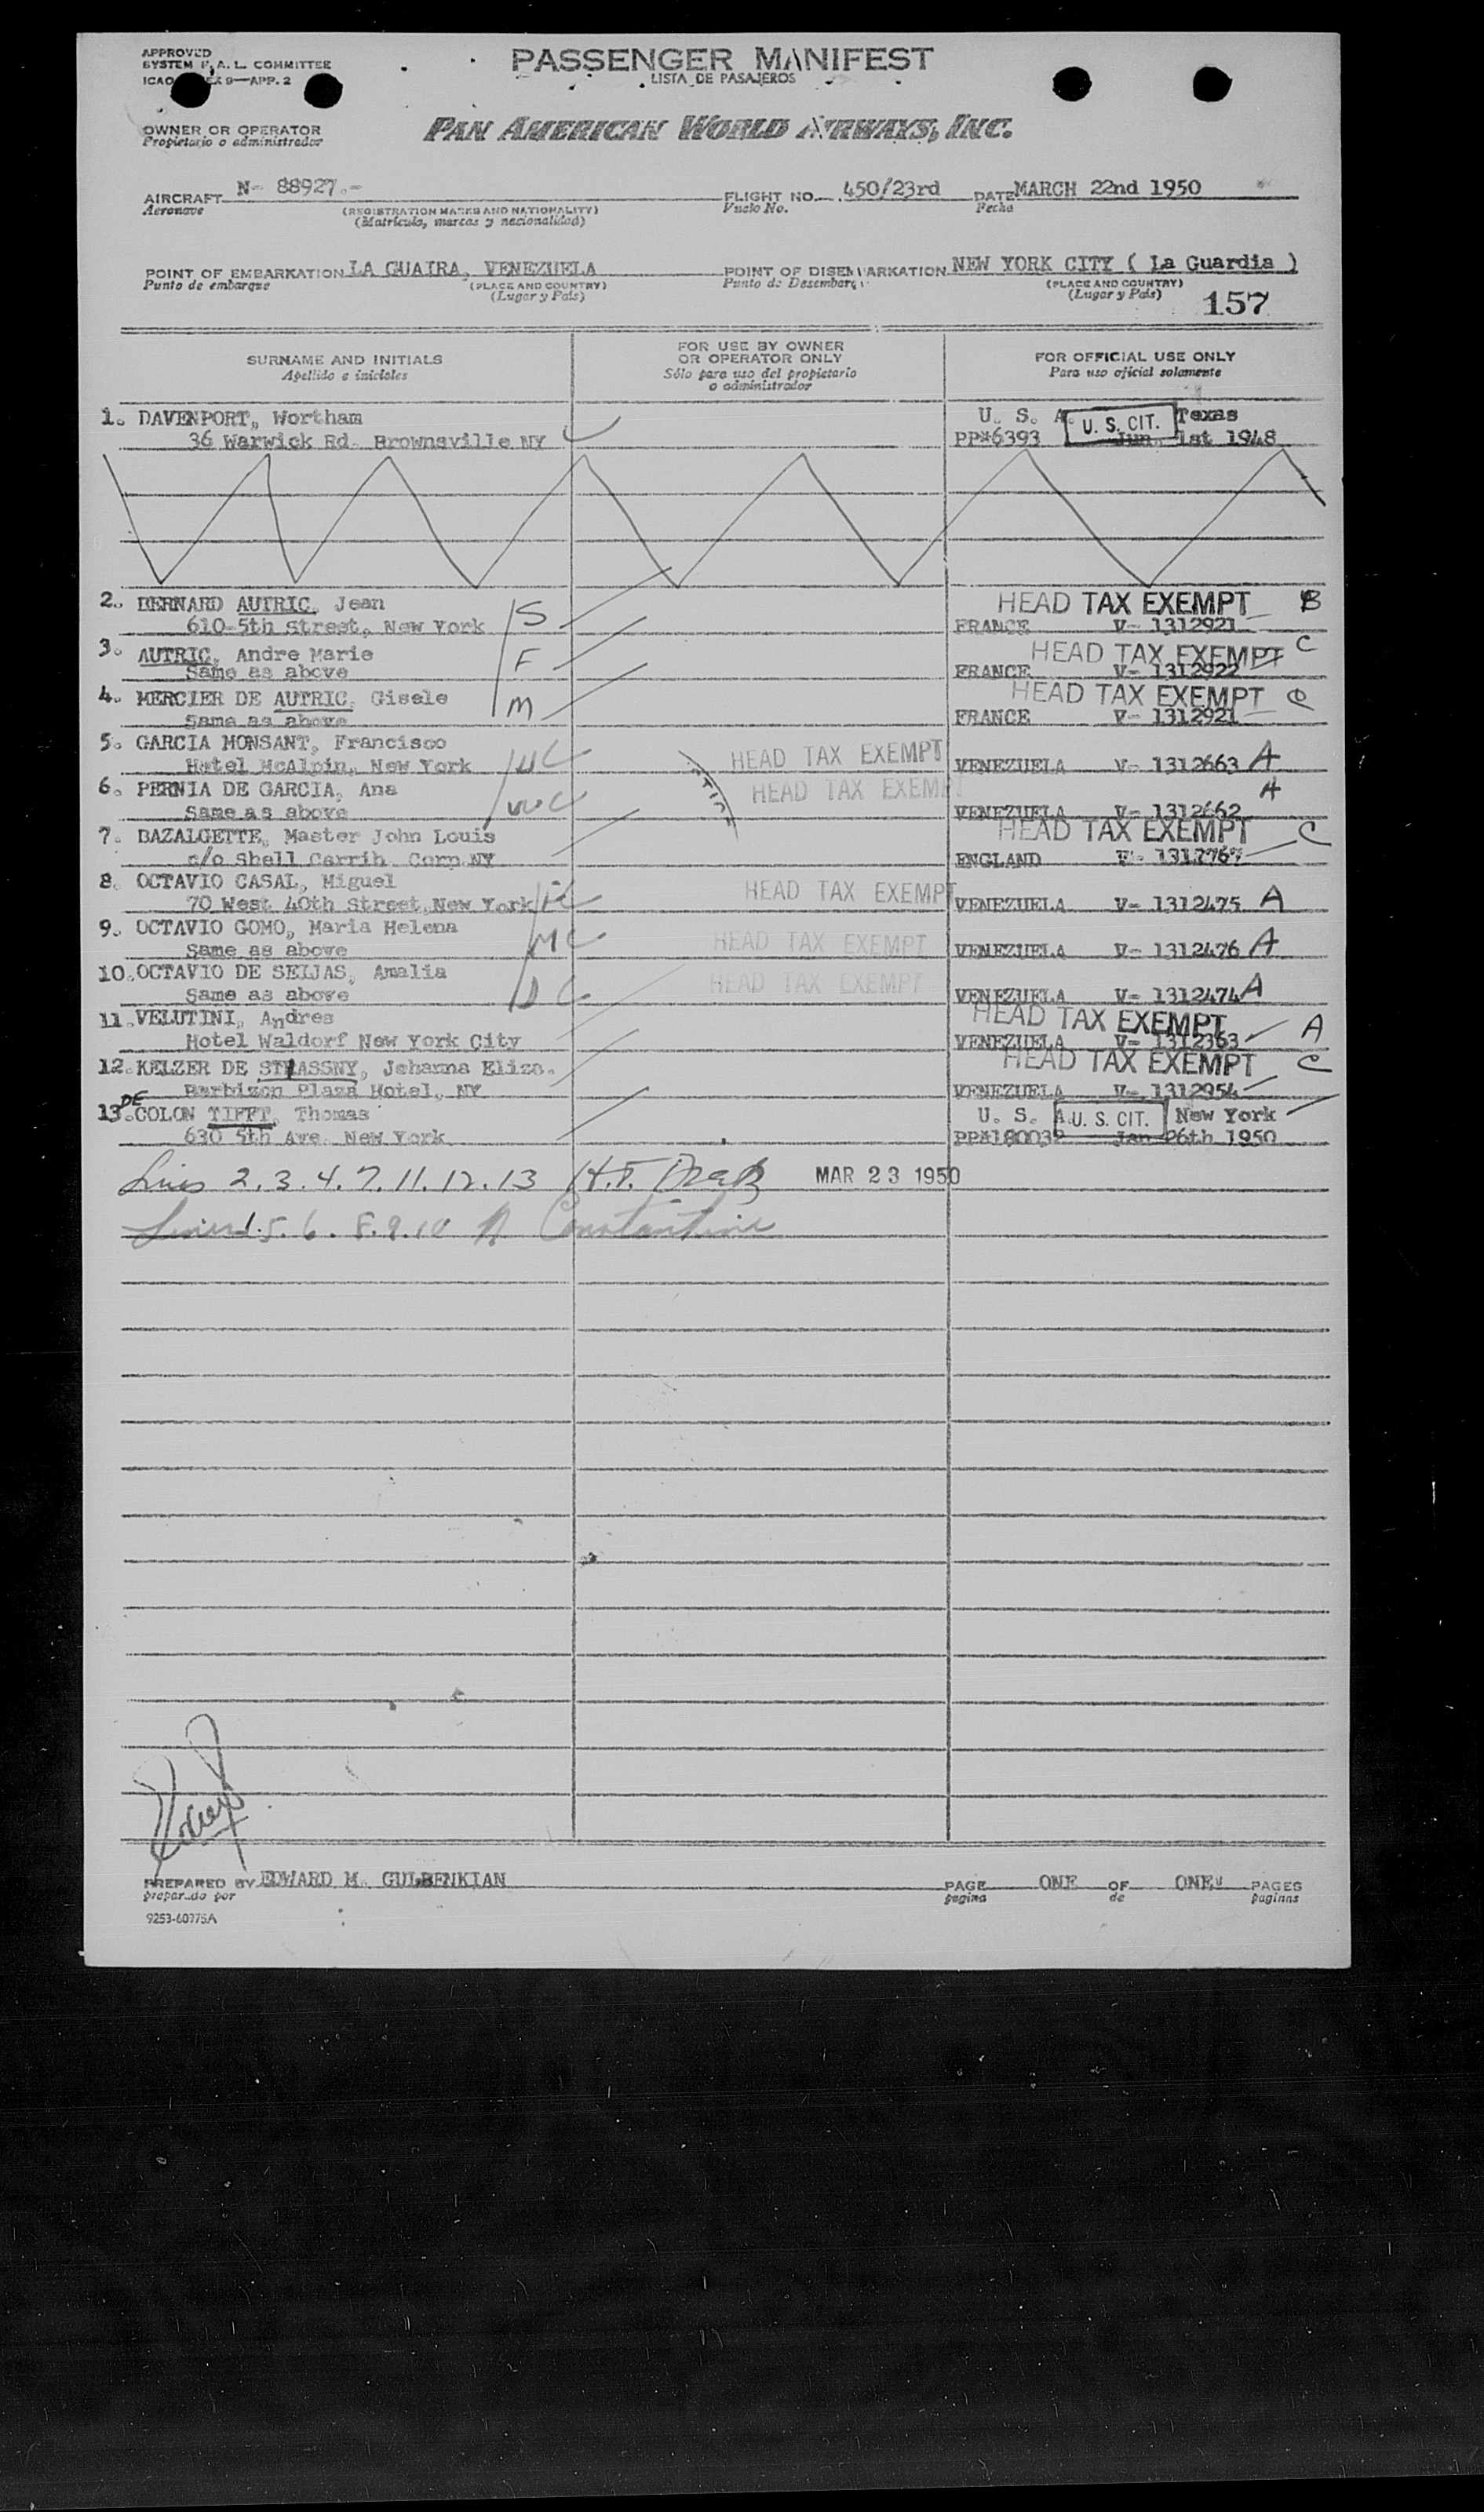 APPROVED
SYSTEM F.A.L. COMMITTEE
ICAO 9—APP. 2
PASSENGER MANIFEST
LISTA DE PASAJEROS
OWNER OR OPERATOR
Propietario o administrador
PAN AMERICAN WORLD AIRWAYS, INC.
AIRCRAFT N- 88927.- FLIGHT NO. 450/23rd DATE MARCH 22nd 1950
Aeronave (REGISTRATION MARKS AND NATIONALITY) Vuelo No. Fecha
(Matrícula, marcas y nacionalidad)
POINT OF EMBARKATION LA GUAIRA, VENEZUELA POINT OF DISEMBARKATION NEW YORK CITY ( La Guardia )
Punto de embarque (PLACE AND COUNTRY) Punto de Desembarque (PLACE AND COUNTRY)
(Lugar y País) (Lugar y País) 157
SURNAME AND INITIALS FOR USE BY OWNER OR OPERATOR ONLY FOR OFFICIAL USE ONLY
Apellido e iniciales Sólo para uso del propietario o administrador Para uso oficial solamente
1. DAVENPORT, Wortham U. S. A. U. S. CIT. Texas
36 Warwick Rd. Brownsville NY PP#6393 Jun 1st 1948
2. BERNARD AUTRIC, Jean S HEAD TAX EXEMPT B
610-5th Street, New York FRANCE V- 1312921
3. AUTRIC, Andre Marie F HEAD TAX EXEMPT C
Same as above FRANCE V- 1312922
4. MERCIER DE AUTRIC, Gisele M HEAD TAX EXEMPT C
Same as above FRANCE V- 1312921
5. GARCIA MONSANT, Francisco HEAD TAX EXEMPT
Hotel McAlpin, New York HC VENEZUELA V- 1312663 A
6. PERNIA DE GARCIA, Ana HEAD TAX EXEMPT A
Same as above WC VENEZUELA V- 1312662
7. BAZALGETTE, Master John Louis HEAD TAX EXEMPT C
c/o Shell Carrib. Corp NY ENGLAND V- 1312767
8. OCTAVIO CASAL, Miguel HEAD TAX EXEMPT
70 West 40th Street, New York FC VENEZUELA V- 1312475 A
9. OCTAVIO GOMO, Maria Helena MC HEAD TAX EXEMPT
Same as above VENEZUELA V- 1312476 A
10. OCTAVIO DE SEIJAS, Amalia HEAD TAX EXEMPT
Same as above DC VENEZUELA V- 1312474 A
11. VELUTINI, Andres HEAD TAX EXEMPT A
Hotel Waldorf New York City VENEZUELA V- 1312363
12. KELZER DE STRASSNY, Johanna Eliza. HEAD TAX EXEMPT C
Barbizon Plaza Hotel, NY VENEZUELA V- 1312954
13. DE COLON TIFFT, Thomas U. S. A. U. S. CIT. New York
630 5th Ave. New York PP#180032 Jan 26th 1950
Lines 2.3.4.7.11.12.13 H.F. MAR 23 1950
Lines 1.5.6.8.9.10 Constantine
PREPARED BY EDWARD M. GULBENKIAN PAGE ONE OF ONE PAGES
preparado por pagina de paginas
9253-60775A